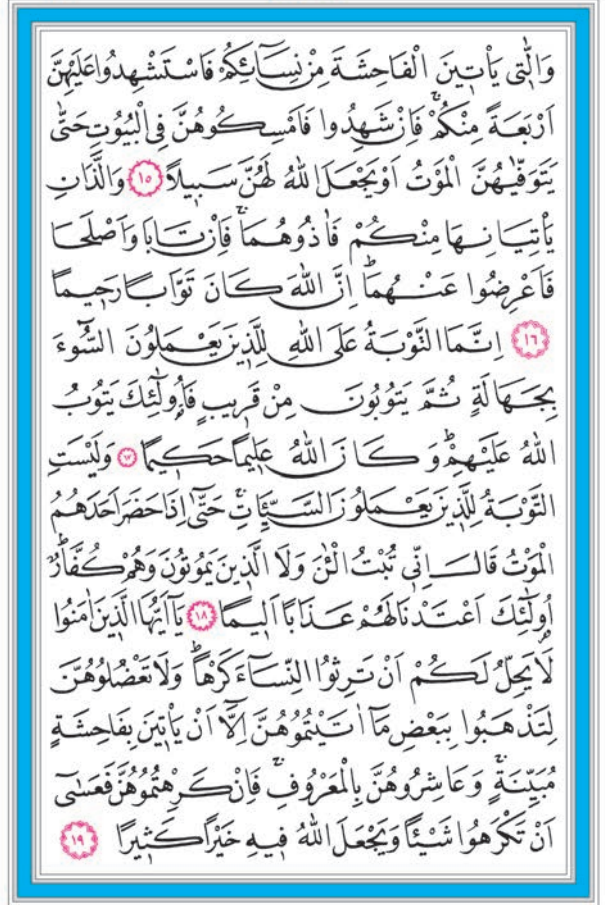 وَالّٰت۪ي يَأْت۪ينَ الْفَاحِشَةَ مِنْ نِسَٓائِكُمْ فَاسْتَشْهِدُوا عَلَيْهِنَّ
اَرْبَعَةً مِنْكُمْۚ فَاِنْ شَهِدُوا فَاَمْسِكُوهُنَّ فِي الْبُيُوتِ حَتّٰى
يَتَوَفّٰيهُنَّ الْمَوْتُ اَوْ يَجْعَلَ اللّٰهُ لَهُنَّ سَب۪يلًا ﴿١٥﴾ وَالَّذَانِ
يَأْتِيَانِهَا مِنْكُمْ فَاٰذُوهُمَاۚ فَاِنْ تَابَا وَاَصْلَحَا
فَاَعْرِضُوا عَنْهُمَاۜ اِنَّ اللّٰهَ كَانَ تَوَّابًا رَح۪يمًا
﴿١٦﴾ اِنَّمَا التَّوْبَةُ عَلَى اللّٰهِ لِلَّذ۪ينَ يَعْمَلُونَ السُّٓوءَ
بِجَهَالَةٍ ثُمَّ يَتُوبُونَ مِنْ قَر۪يبٍ فَاُو۬لٰٓئِكَ يَتُوبُ
اللّٰهُ عَلَيْهِمْۜ وَكَانَ اللّٰهُ عَل۪يمًا حَك۪يمًا ﴿١٧﴾ وَلَيْسَتِ
التَّوْبَةُ لِلَّذ۪ينَ يَعْمَلُونَ السَّيِّـَٔاتِۚ حَتّٰٓى اِذَا حَضَرَ اَحَدَهُمُ
الْمَوْتُ قَالَ اِنّ۪ي تُبْتُ الْـٰٔنَ وَلَا الَّذ۪ينَ يَمُوتُونَ وَهُمْ كُفَّارٌۜ
اُو۬لٰٓئِكَ اَعْتَدْنَا لَهُمْ عَذَابًا اَل۪يمًا ﴿١٨﴾ يَٓا اَيُّهَا الَّذ۪ينَ اٰمَنُوا
لَا يَحِلُّ لَكُمْ اَنْ تَرِثُوا النِّسَٓاءَ كَرْهًاۜ وَلَا تَعْضُلُوهُنَّ
لِتَذْهَبُوا بِبَعْضِ مَٓا اٰتَيْتُمُوهُنَّ اِلَّٓا اَنْ يَأْت۪ينَ بِفَاحِشَةٍ
مُبَيِّنَةٍۚ وَعَاشِرُوهُنَّ بِالْمَعْرُوفِۚ فَاِنْ كَرِهْتُمُوهُنَّ فَعَسٰٓى
اَنْ تَكْرَهُوا شَيْـًٔا وَيَجْعَلَ اللّٰهُ ف۪يهِ خَيْرًا كَث۪يرًا ﴿١٩﴾